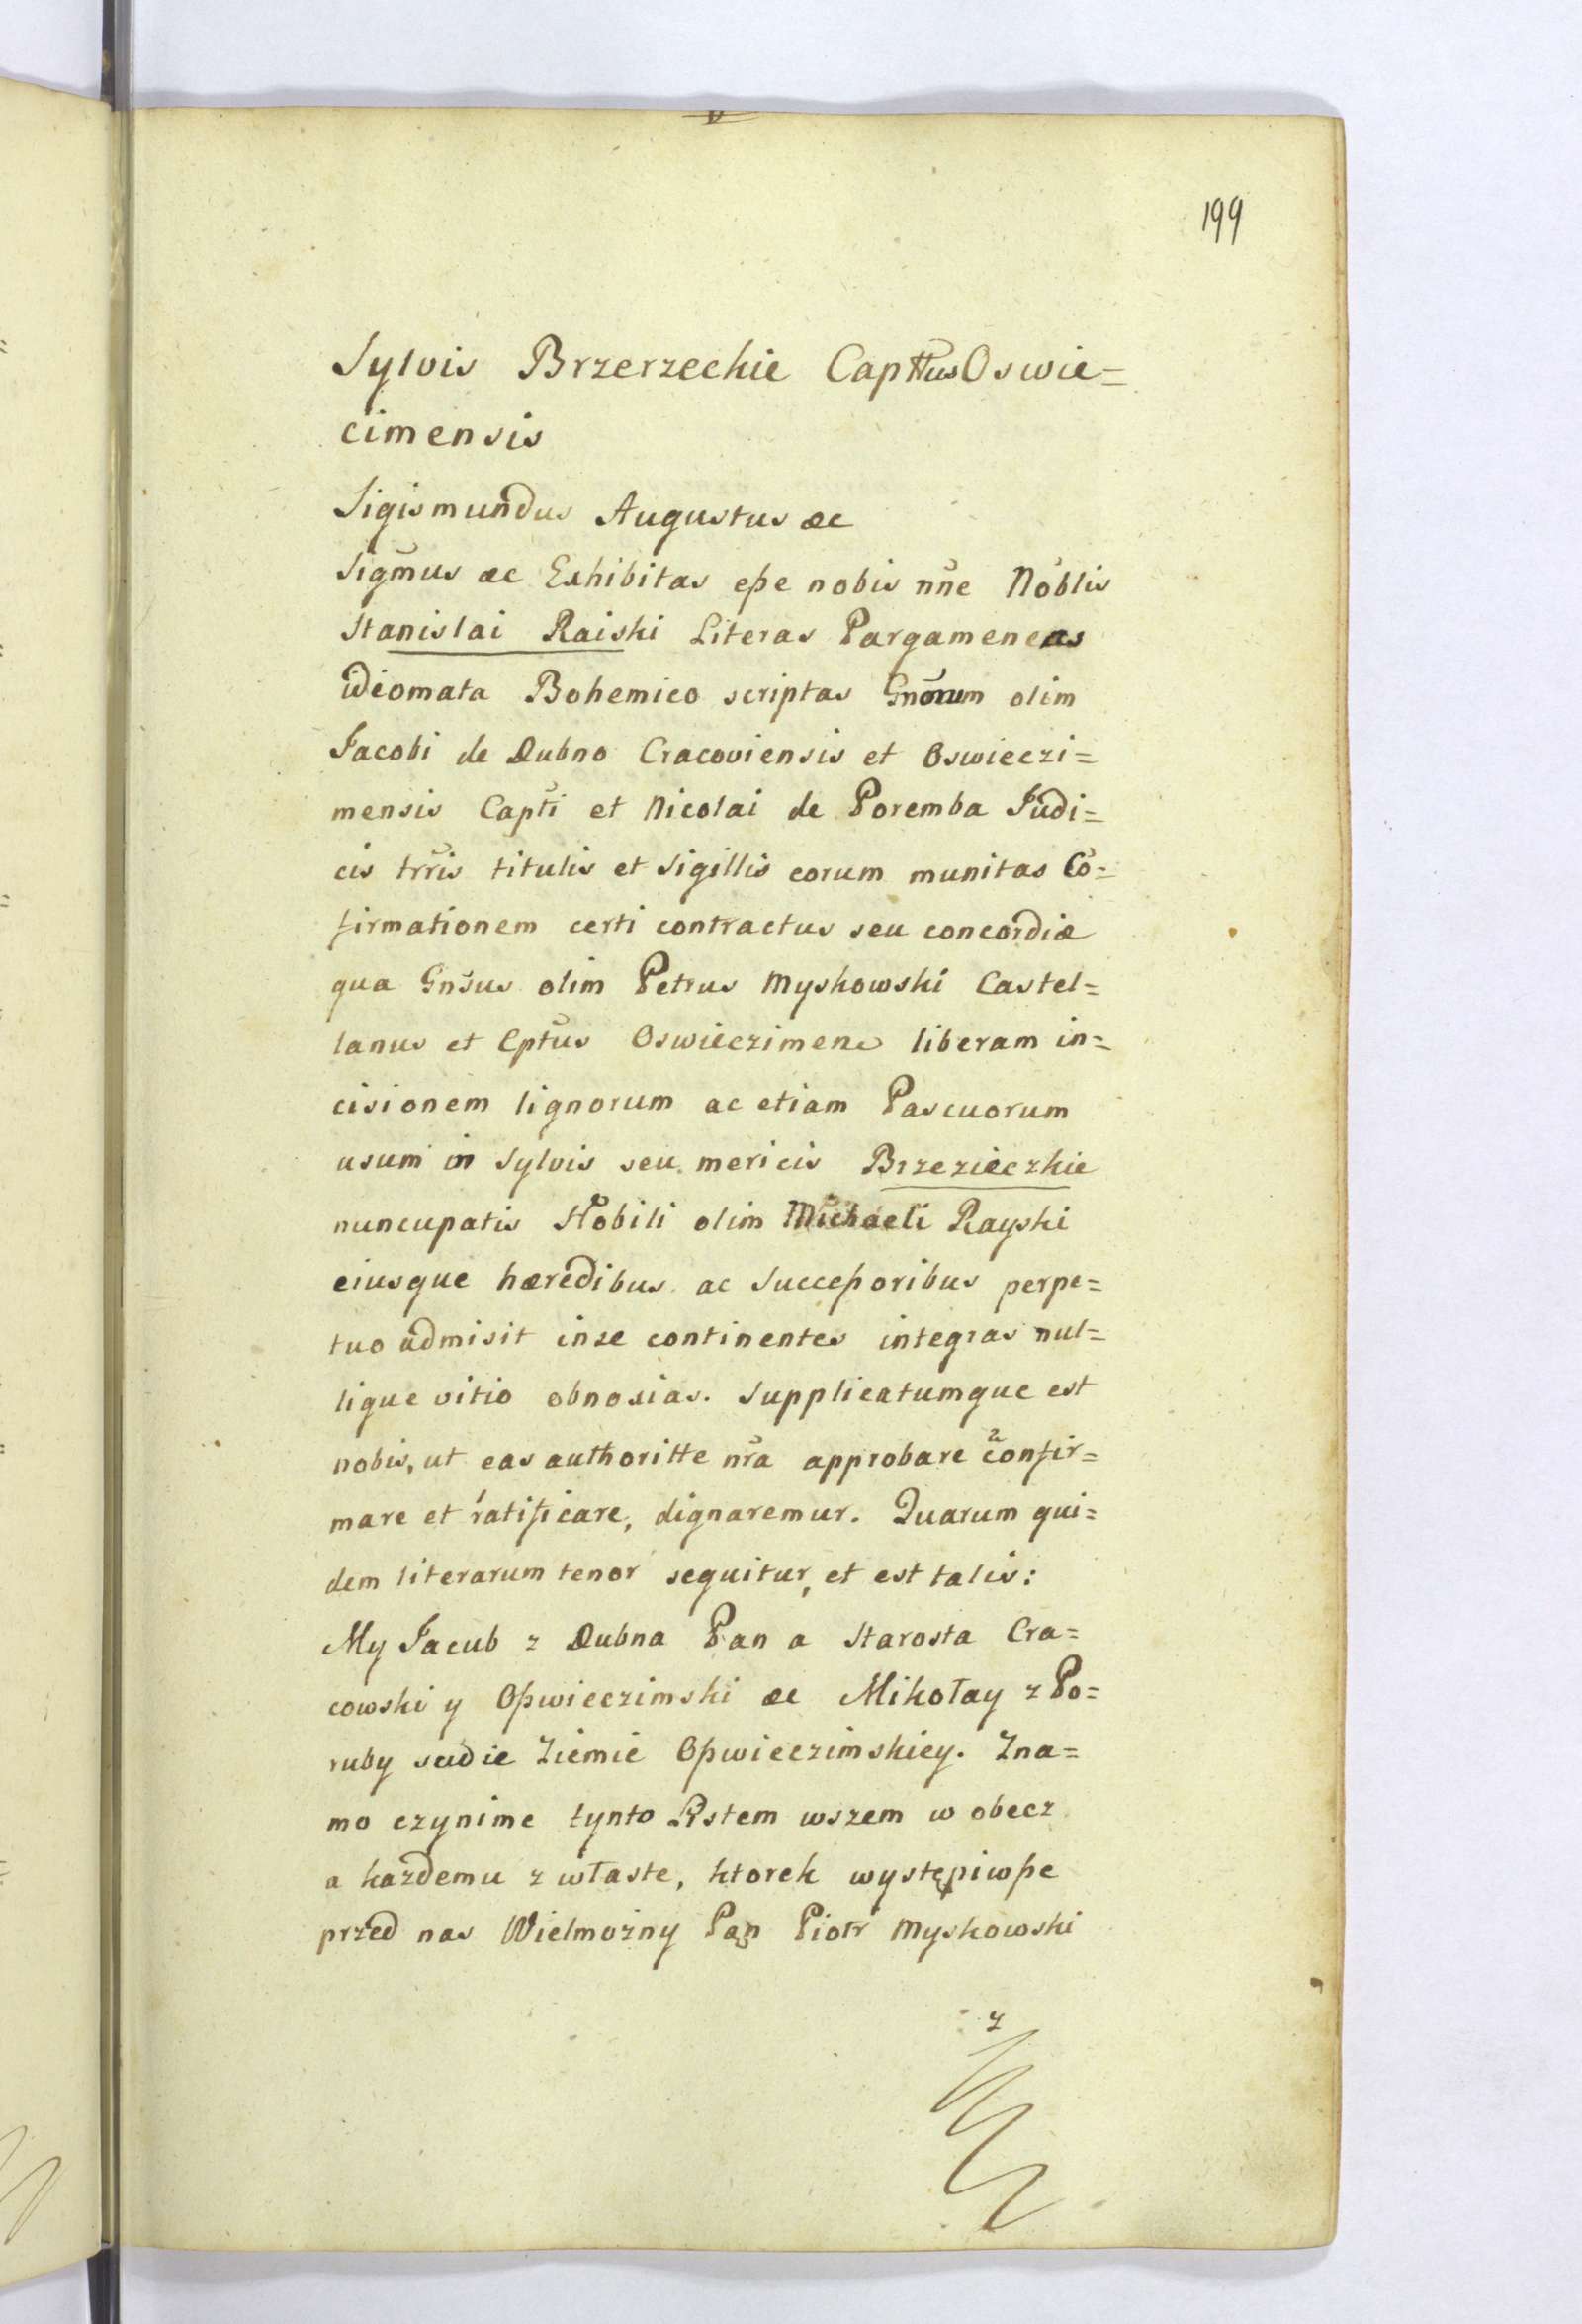 199
Sylvis Brzerzeckie Capttus Oswie=
cimensis
Sigismundus Augustus ac
Sigmus ac Exhibitas eße nobis nne Noblis
Stanislai Raiski Literas Pargameneas
idiomata Bohemico scriptas Gnorum olim
Jacobi de Dubno Cracoviensis et Oswieczi=
mensis Capti et Nicolai de Poremba Judi=
cis trris titulis et Sigillis eorum munitas Co=
firmationem certi contractus seu concordiæ
qua Gnsus olim Petrus Myskowski Castel=
lanus et Cptus Oswieczimen liberam in=
cisionem lignorum ac etiam Pascuorum
usum in Sylvis seu mericis Brzezieczkie
nuncupatis Nobili olim Michaeli Rayski
eiusque hæredibus ac Succeßoribus perpe=
tuo admisit inse continentes integras nul=
lique vitio obnoxias. Supplicatumque est
nobis, ut eas authoritte nra approbare confir=
mare et ratificare, dignaremur. Quarum qui=
dem literarum tenor sequitur, et est talis:
My Jacub z Dubna Pan a Starosta Cra=
cowski y Oßwieczimski ac Mikołay z Po=
ruby sudie Ziemie Oßwieczimskiey. Zna=
mo czynime tynto Listem wszem w obecz
a kazdemu z właste, ktorek występiwße
przed nas Wielmożny Pan Piotr Myskowski
z